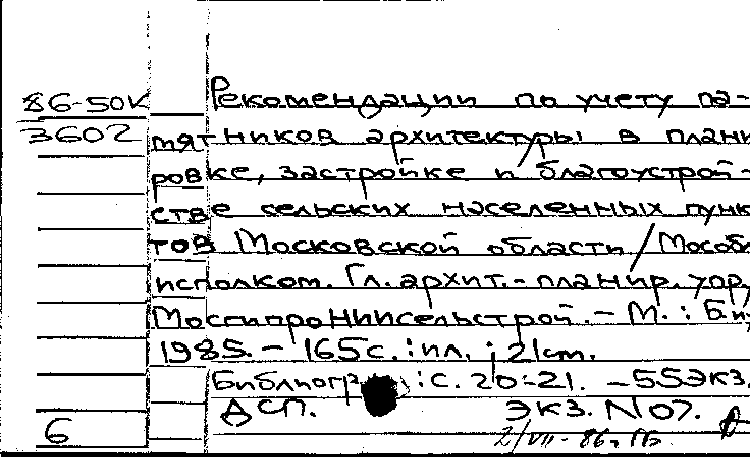 86-50К Рекомендации по учету па-
3602 мятников архитектуры в плани
ровке, застройке и благоустрой-
стве сельских населенных пунк
тов Московской области / Мособл
исполком. Гл. архит.-планир. упр,
МосгипроНИИсельстрой. - М. : Б.и,
1985. - 165с. : ил. ; 21см.
Библиогр : с. 20-21. - 55экз.
ДСП. экз. №07.
6